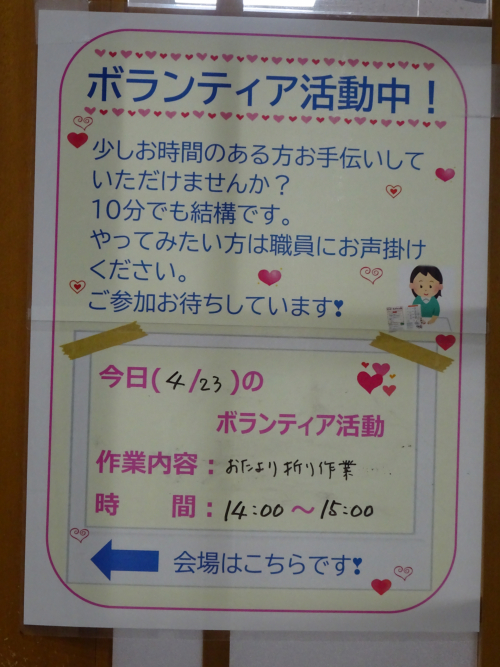 ボランティア活動中！
少しお時間のある方お手伝いして
いただけませんか？
10分でも結構です。
やってみたい方は職員にお声掛け
ください。
ご参加お待ちしています❣
今日(4/23)の
ボランティア活動
作業内容：おたより折り作業
時　間：14:00～15:00
会場はこちらです❣